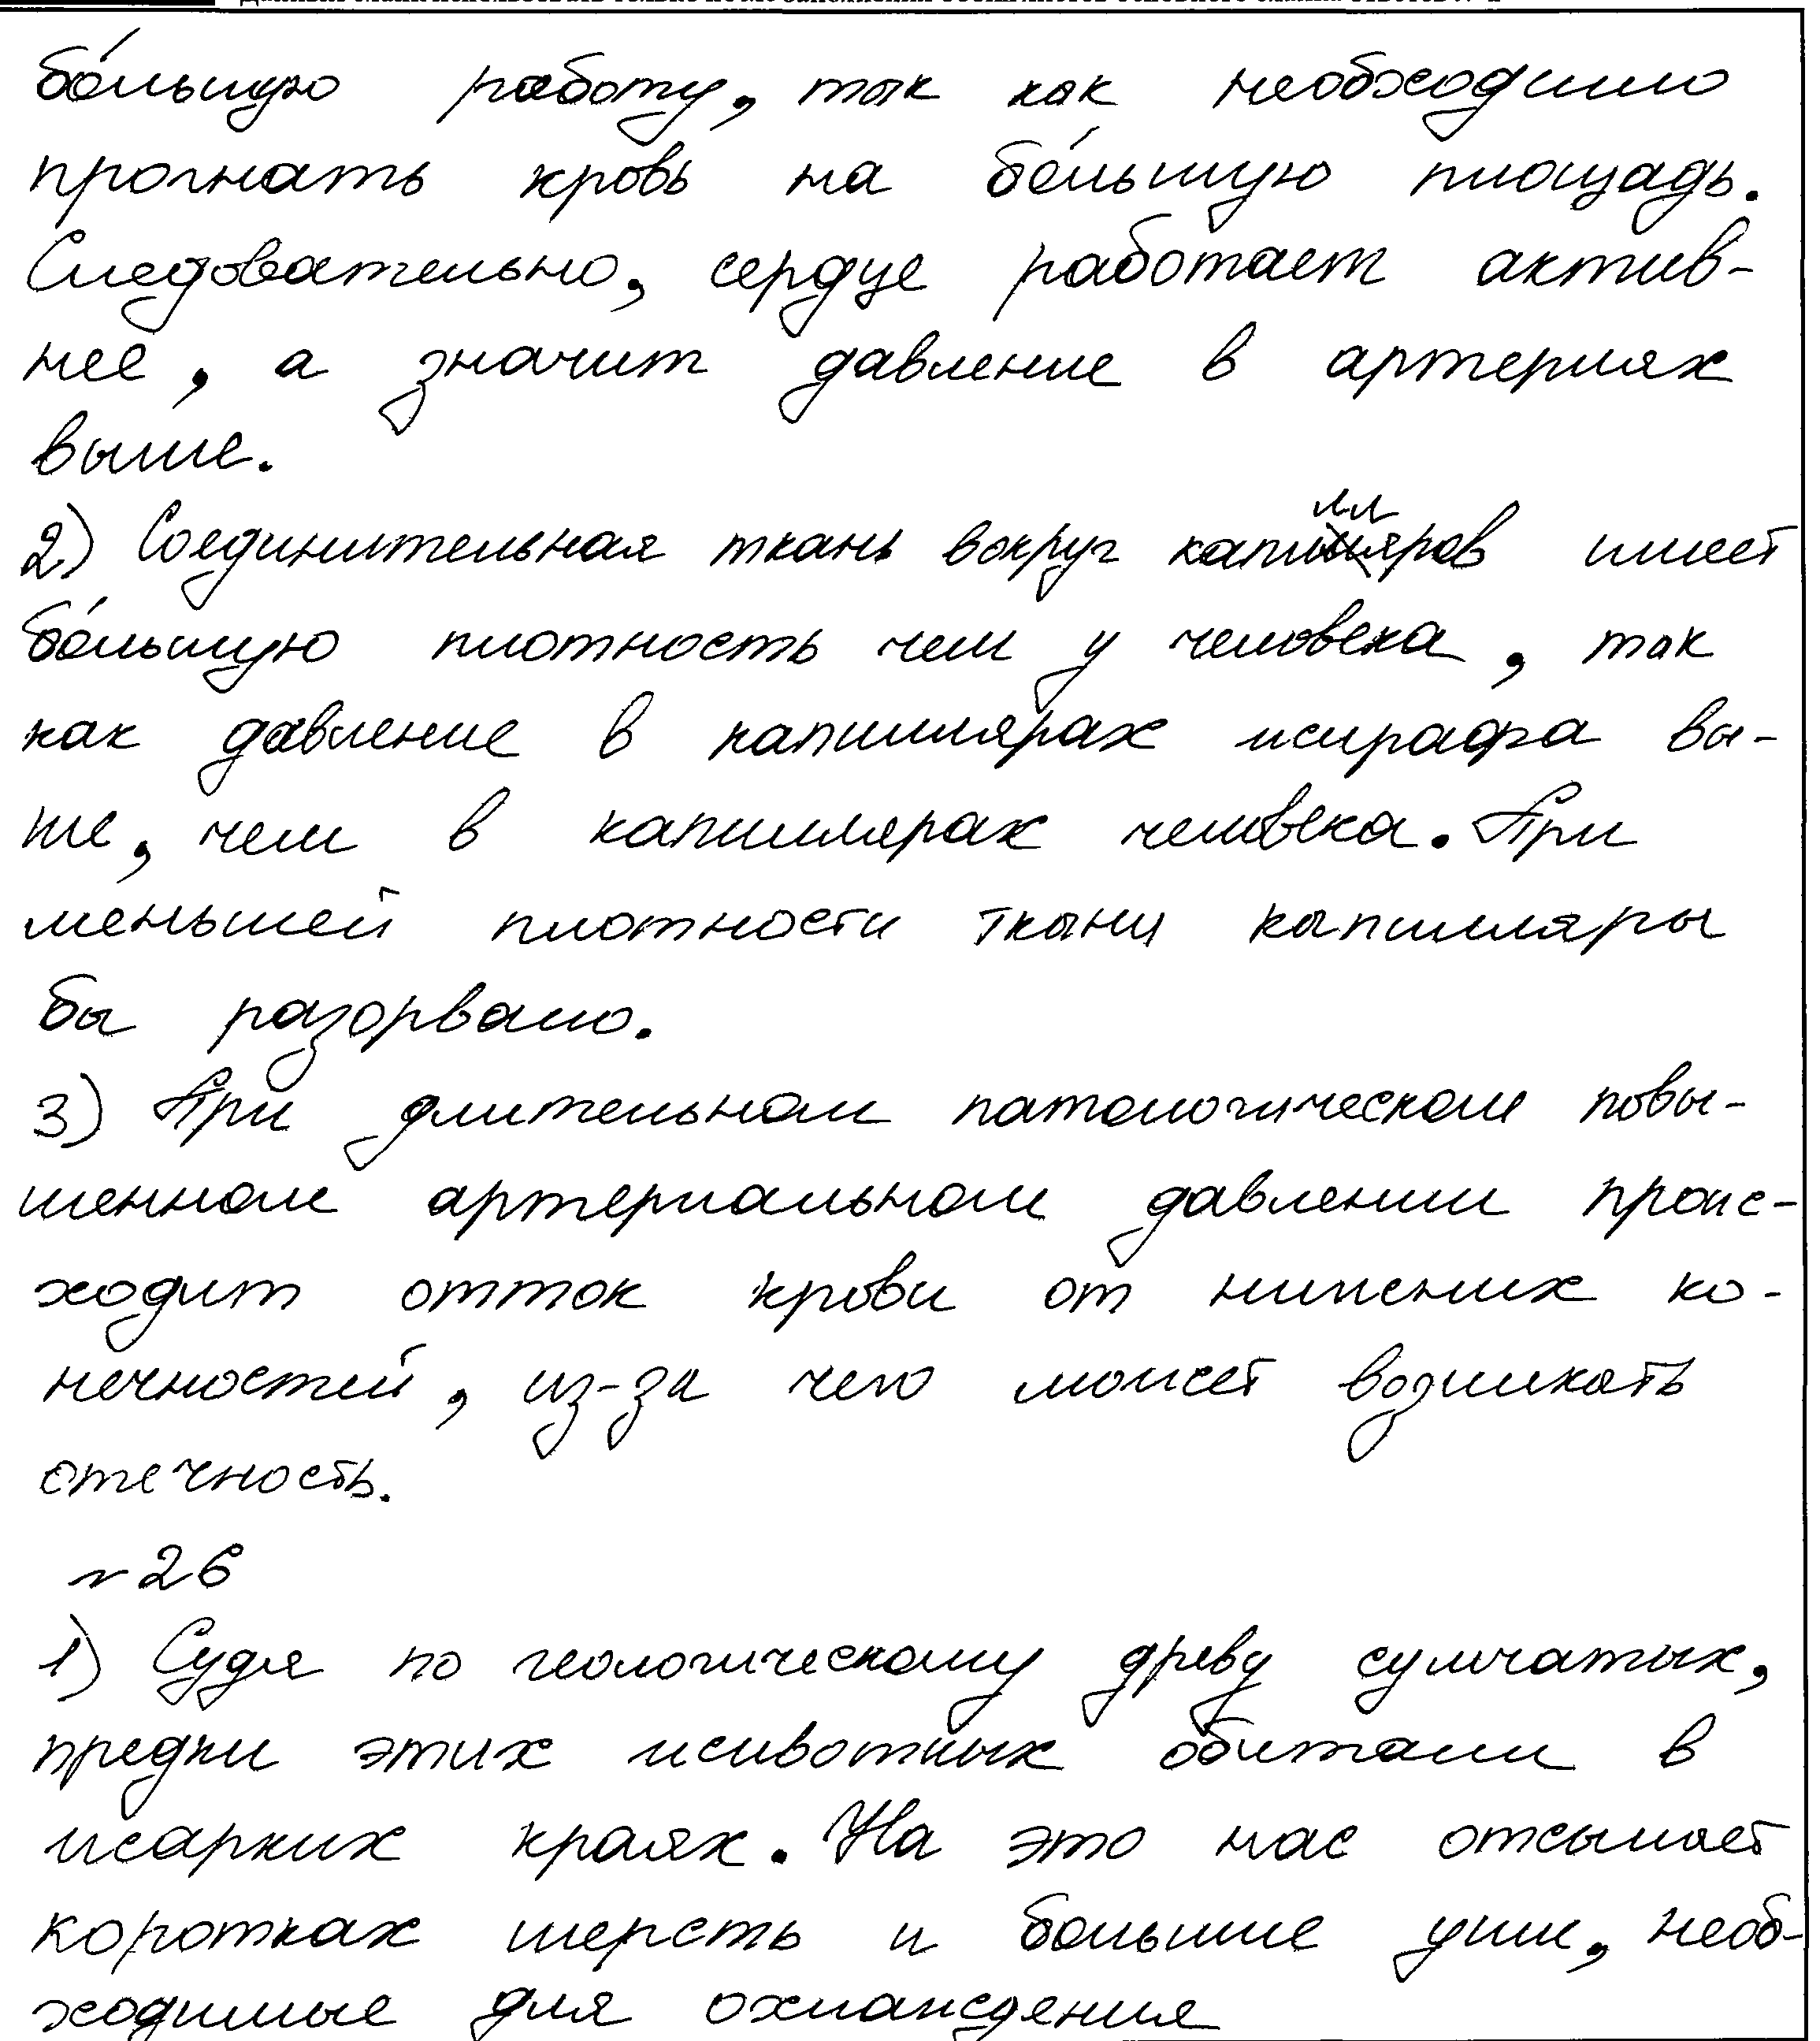 бо́льшую работу, так как необходимо
прогнать кровь на бо́льшую площадь.
Следовательно, сердце работает актив-
нее, а значит давление в артериях
выше.
2) Соединительная ткань вокруг капилляров имеет
бо́льшую плотность чем у человека, так
как давление в капиллярах жирафа вы-
ше, чем в капиллярах человека. При
меньшей плотности ткани капилляры
бы разорвало.
3) При длительном патологическом повы-
шенном артериальном давлении проис-
ходит отток крови от нижних ко-
нечностей, из-за чего может возникать
отечность.
№26
1) Судя по геологическому древу сумчатых,
предки этих животных обитали в
жарких краях. На это нас отсылает
короткая шерсть и большие уши, необ-
ходимые для охлаждения